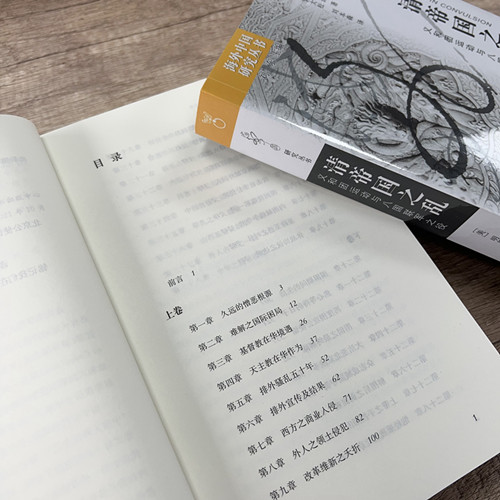 目 录
前言 1
上卷
第一章 久远的憎恶根源 3
第二章 难解之国际困局 12
第三章 基督教在华境遇 26
第四章 天主教在华作为 37
第五章 排外骚乱五十年 52
第六章 排外宣传及结果 62
第七章 西方之商业入侵 71
第八章 外人之领土侵犯 82
第九章 改革维新之夭折 100
1
海外中国
研究丛书
清帝国之乱
义和团运动与八国联军之役
CONVULSION
清帝国之
义和团运动与八国